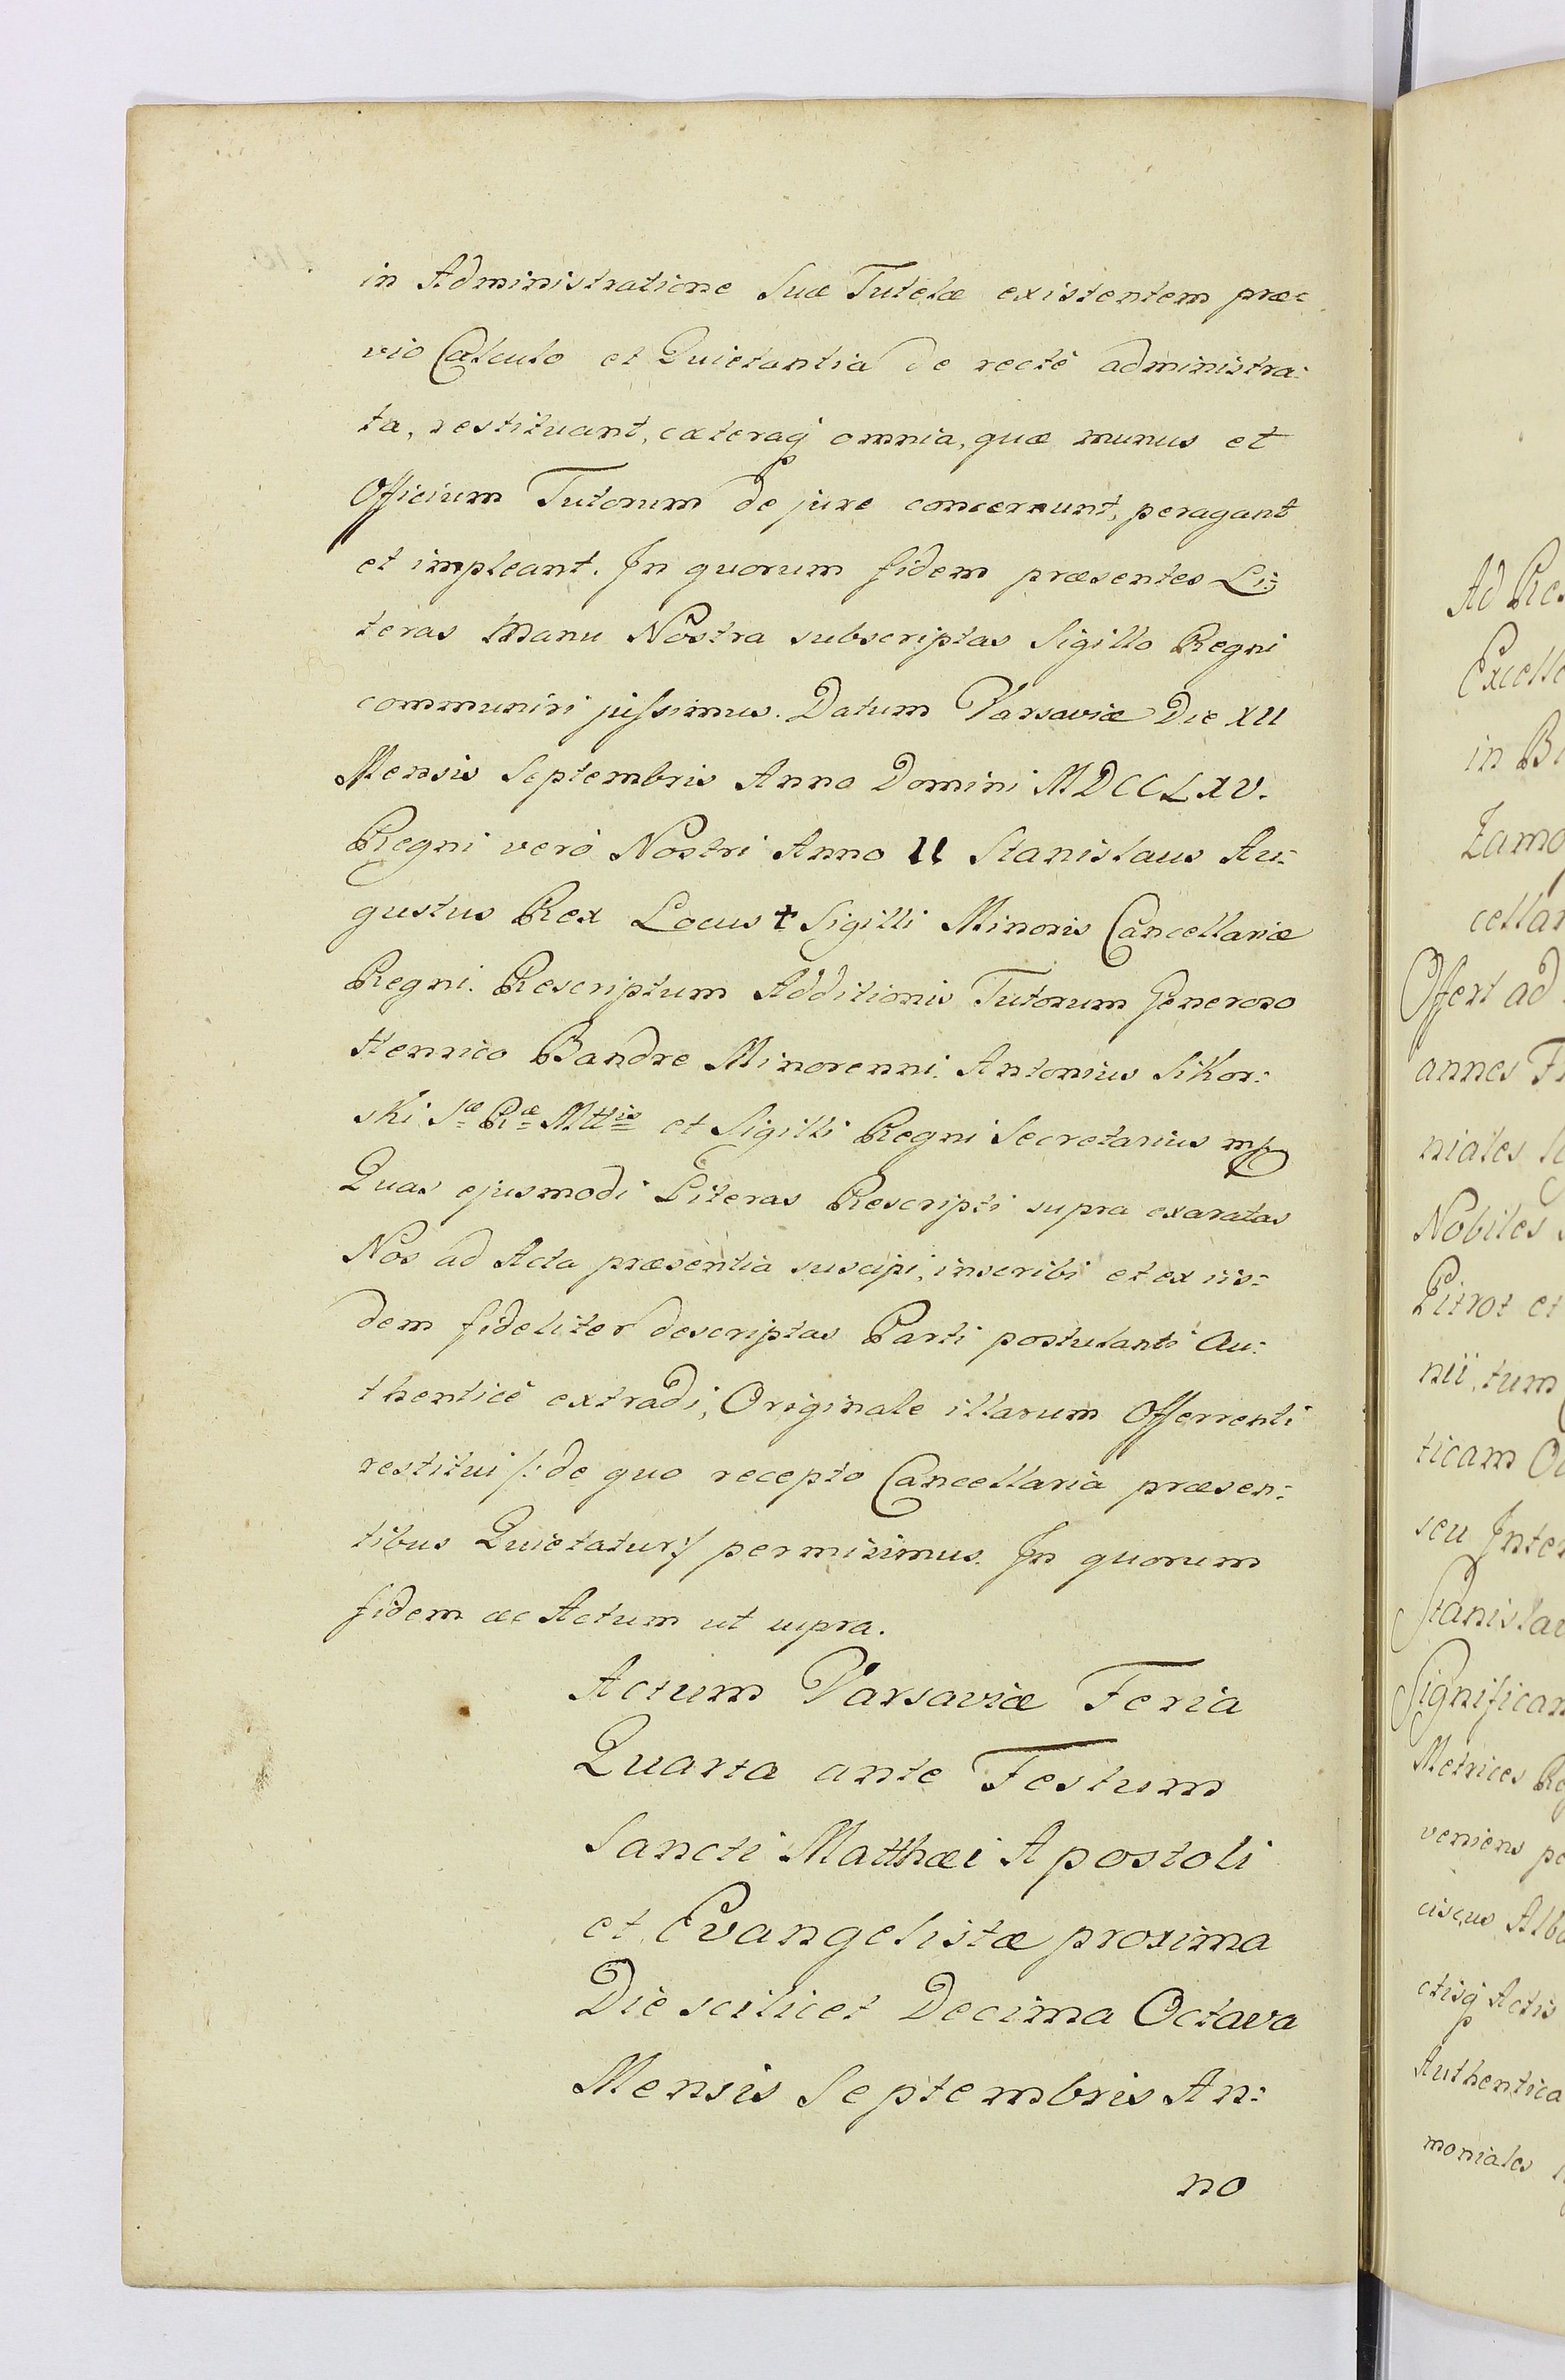 in Administratione Suæ Tutelæ existentem præ=
vio Calculo et Quietantia de rectè administra:
ta, restituant, cæteraq; omnia, quæ munus et
Officium Tutorum de jure concernunt, peragant
et impleant. In quorum fidem præsentes Li:
teras Manu Nostra subscriptas Sigillo Regni
communiri jussimus. Datum Varsaviæ Die XII
Mensis Septembris Anno Domini MDCCLXV.
Regni verò Nostri Anno II Stanislaus Au:
gustus Rex Locus ✝ Sigilli Minoris Cancellariæ
Regni. Rescriptum Additionis Tutorum Generoso
Henrico Bandre Minorenni. Antonius Sikor:
ski Sæ Ræ Mttis et Sigilli Regni Secretarius mp
Quas ejusmodi Literas Rescripti supra exaratas
Nos ad Acta præsentia suscipi, inscribi et ex iis:
dem fideliter descriptas Parti postulanti Au:
thenticè extradi, Originale illarum Offerrenti
restitui /: de quo recepto Cancellaria præsen:
tibus Quietatur :/ permisimus. In quorum
fidem ac Actum ut supra.
Actum Varsaviæ Feria
Quarta ante Festum
Sancti Matthæi Apostoli
et Evangelistæ proxima
Die scilicet Decima Octava
Mensis Septembris An:
no
Ad
in
Offert ad
annes
niales
Nobiles
Pitrot et
nii, tum
ticam
seu
Metrices
veniens
ciscus
ctisq; Actis
Authentica
moniales